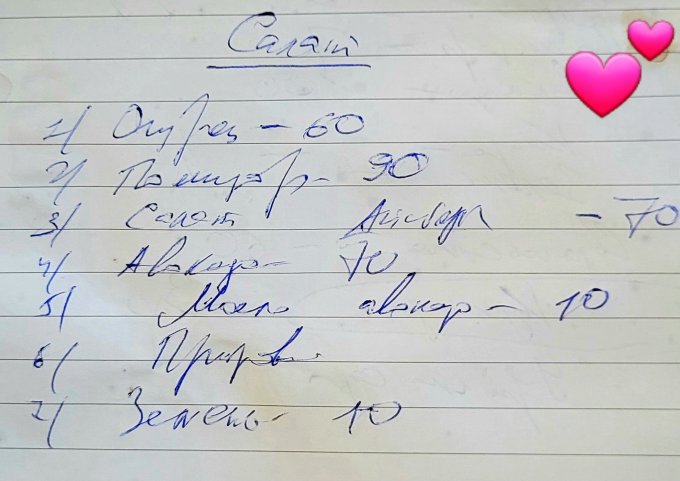 Салат
1/ Огурец - 60
2/ Помидор - 90
3/ Салат Айсберг - 70
4/ Авокадо - 70
5/ Масло авокадо - 10
6/
7/ Зелень - 10